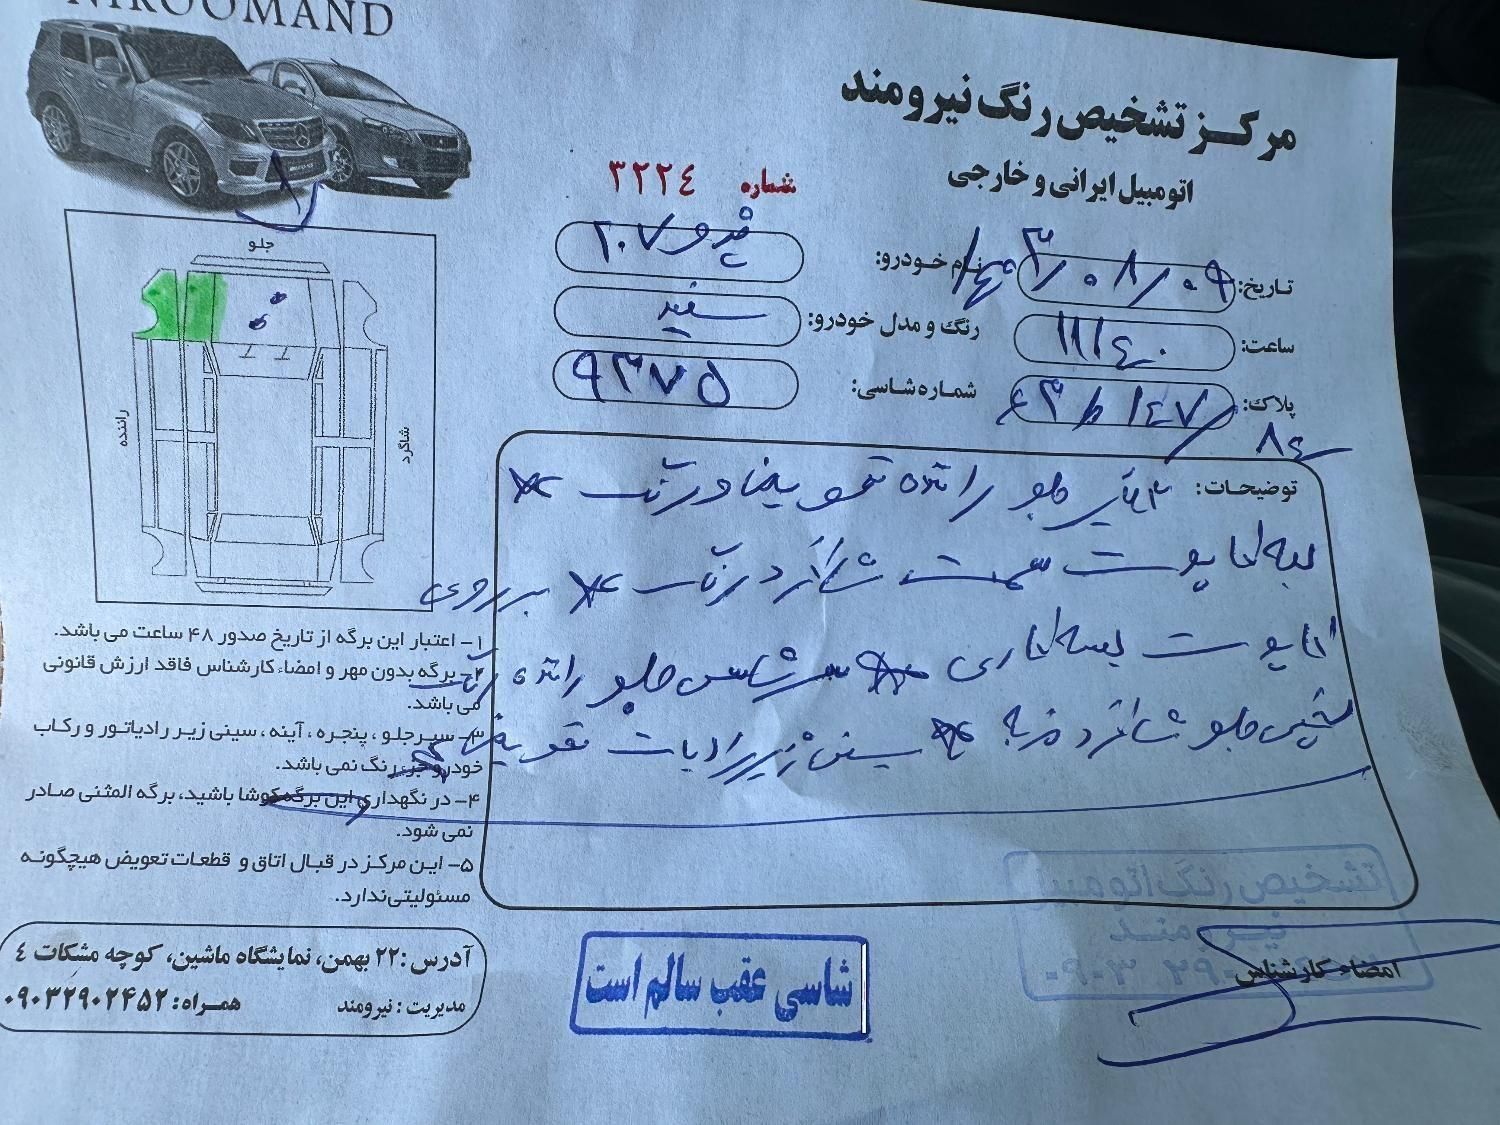 NIROOMAND
مرکز تشخیص رنگ نیرومند
اتومبیل ایرانی و خارجی
شماره ۳۲۲٤
تاریخ: ۰۳/۰۸/۰۹
نام خودرو: پژو ۲۰۷
ساعت: ۱۱/۴۰
رنگ و مدل خودرو: سفید
پلاک: ۱۴۷
۸۴
شماره شاسی: ۹۳۷۵
جلو
راننده
شاگرد
توضیحات: گلگیر جلو راننده تعویض و رنگ *
لبه کاپوت سمت شاگرد رنگ * بر روی
کاپوت لکه‌گیری * سرشاسی جلو راننده رنگ
شاسی جلو شاگرد ضربه * سینی زیر رادیات تعویض
۱- اعتبار این برگه از تاریخ صدور ۴۸ ساعت می باشد.
۲- برگه بدون مهر و امضاء کارشناس فاقد ارزش قانونی
می باشد.
۳- سپر جلو، پنجره، آینه، سینی زیر رادیاتور و رکاب
خودرو جزء رنگ نمی باشد.
۴- در نگهداری این برگه کوشا باشید، برگه المثنی صادر
نمی شود.
۵- این مرکز در قبال اتاق و قطعات تعویض هیچگونه
مسئولیتی ندارد.
آدرس: ۲۲ بهمن، نمایشگاه ماشین، کوچه مشکات ٤
مدیریت: نیرومند همراه: ۰۹۰۳۲۹۰۲۴۵۲
شاسی عقب سالم است
تشخیص رنگ اتومبیل
نیرومند
امضاء کارشناس